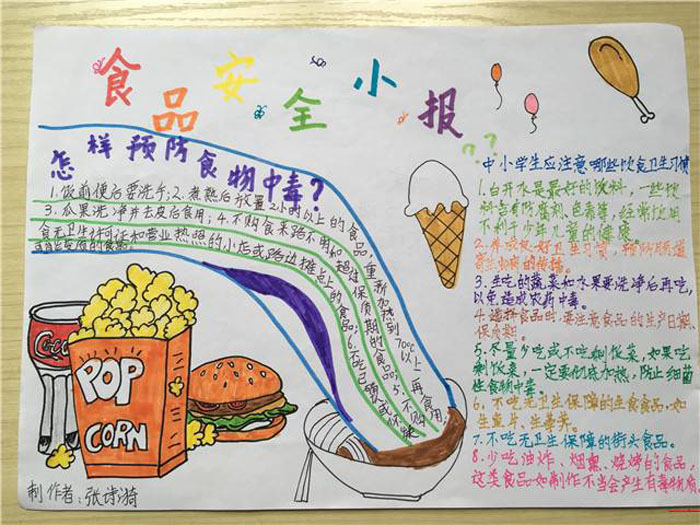 食品安全小报
怎样预防食物中毒?
1.饭前便后要洗手;2.煮熟后放置2小时以上的食品,重新加热到70℃以上再食用
3.瓜果洗净并去皮后食用;4.不购食来路不明和超过保质期的食品;5.不购
食无卫生许可证和营业执照的小店或路边摊点上的食品;6.不吃已确认或怀疑
Coca
POP
CORN
制作者:张诗漪
中小学生应注意哪些饮食卫生习惯
1.白开水是最好的饮料,一些饮
料含有防腐剂、色素等,经常饮用
不利于少年儿童的健康
2.养成良好卫生习惯,预防肠道
寄生虫病的传播。
3.生吃的蔬菜和水果要洗净后再吃,
以免造成农药中毒。
4.选择食品时,要注意食品的生产日期、
保质期。
5.尽量少吃或不吃剩饭菜,如果吃
剩饭菜,一定要彻底加热,防止细菌
性食物中毒
6.不吃无卫生保障的生食食品,如
生鱼片、生荸荠。
7.不吃无卫生保障的街头食品。
8.少吃油炸、烟熏、烧烤的食品,
这类食品如制作不当会产生有毒物质